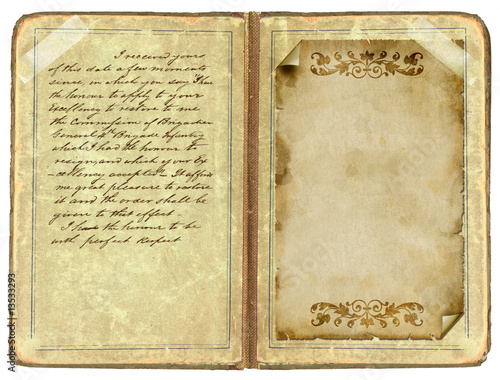 I received yours
of this date a few moments
since, in which you say I have
the honour to apply to your
Excellency to restore to me
the Commission of Brigadier
General 4th Brigade Infantry
which I had the honour to
resign, and which your Ex-
-cellency accepted - It affords
me great pleasure to restore
it and the order shall be
given to that effect -
I have the honour to be
with perfect Respect
13533293